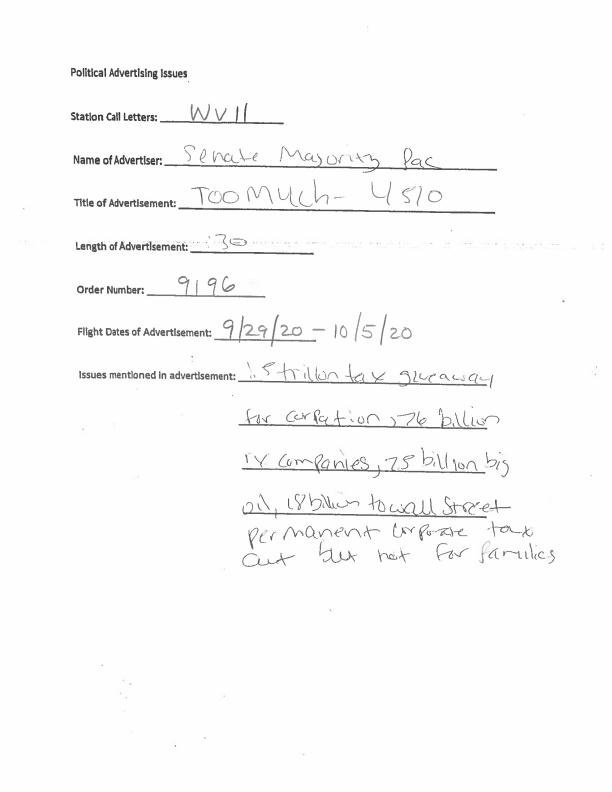 Political Advertising Issues
Station Call Letters: WVII
Name of Advertiser: Senate Majority Pac
Title of Advertisement: TOO MUCh- 4510
Length of Advertisement: :30
Order Number: 9196
Flight Dates of Advertisement: 9/29/20 - 10/5/20
Issues mentioned in advertisement: 1.5 trillon tax giveaway
for corpation, 76 billion
companies, 25 billion big
oil, 18 billion to wall Street
permanent corporate tax
cut but not for families